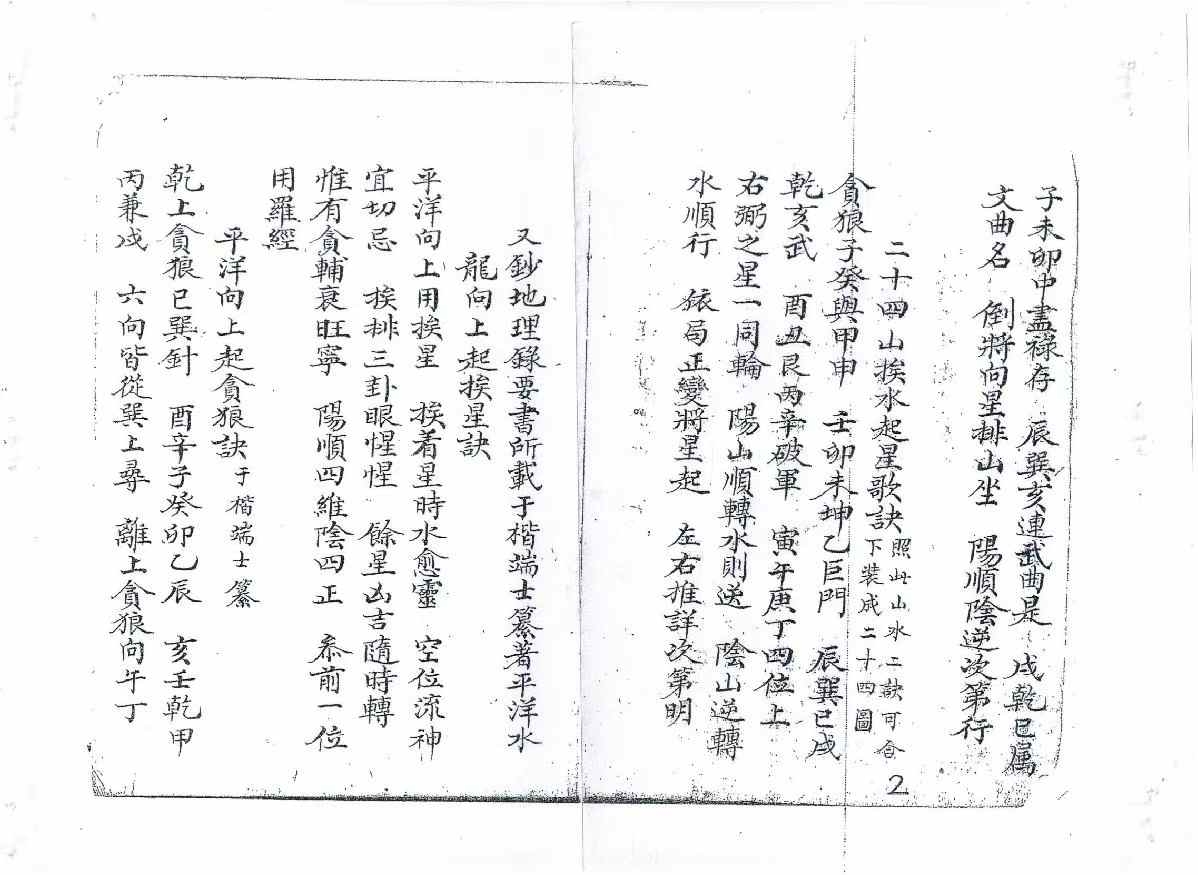 子未卯中盡祿存　辰巽亥連武曲是　戌乾巳属
文曲名　倒將向星排山坐　陽順陰逆次第行
二十四山挨水起星歌訣 照此山水二訣可合
下装成二十四圖
貪狼子癸與甲申　壬卯未坤乙巨門　辰巽巳戌
乾亥武　酉丑艮丙辛破軍　寅午庚丁四位上
右弼之星一同輪　陽山順轉水則逆　陰山逆轉
水順行　依局正變將星起　左右推詳次第明
又鈔地理錄要書所載于楷端士纂著平洋水
龍向上起挨星訣
平洋向上用挨星　挨着星時水愈靈　空位流神
宜切忌　挨排三卦眼惺惺　餘星凶吉隨時轉
惟有貪輔衰旺寧　陽順四維陰四正　叅前一位
用羅經
平洋向上起貪狼訣 于楷端士纂
乾上貪狼巳巽針　酉辛子癸卯乙辰　亥壬乾甲
丙兼戌　六向皆從巽上尋　離上貪狼向午丁
2